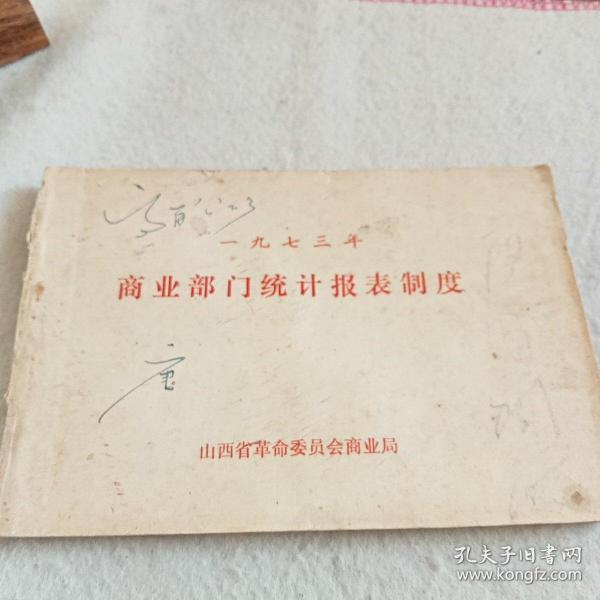 一九七三年
商业部门统计报表制度
山西省革命委员会商业局
孔夫子旧书网
www.kongfz.com